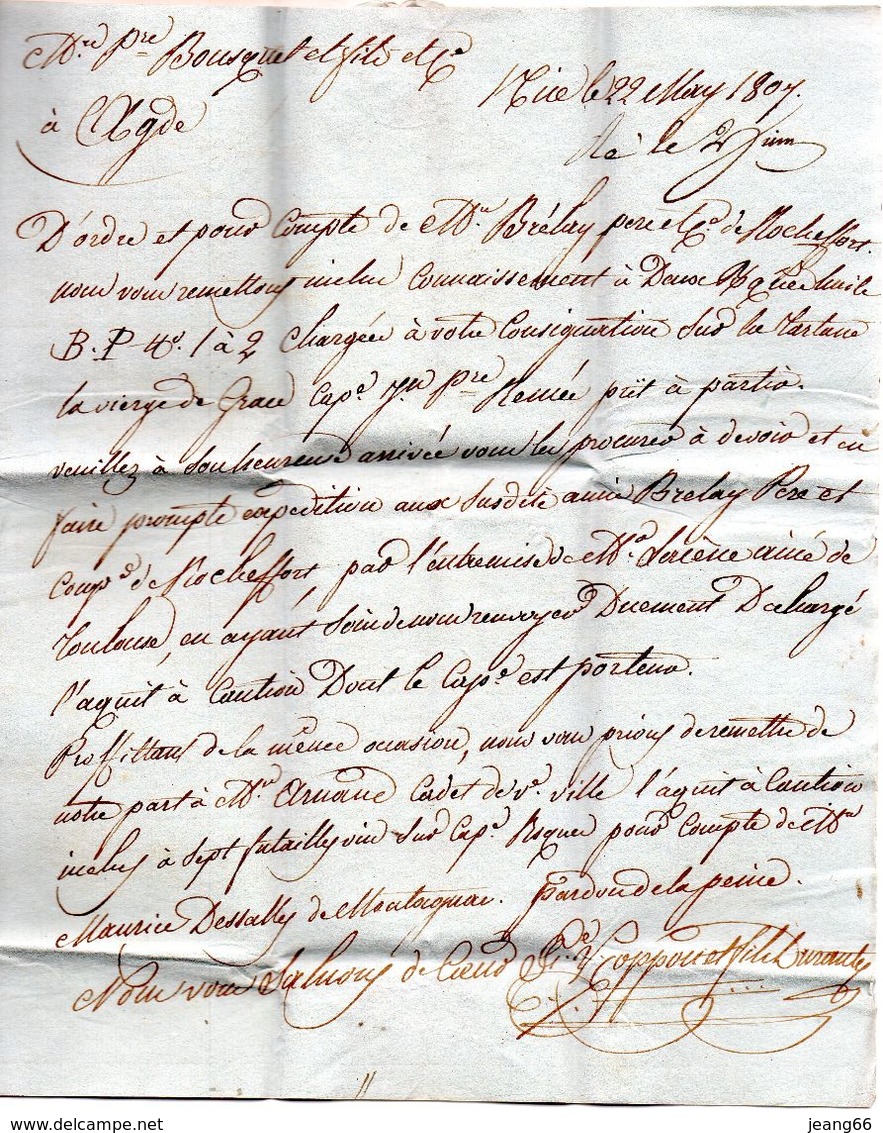 Mrs. Pre Bousquet et fils et Ce
à Agde
Nice le 22 May 1807.
Re le 2 Juin
D'ordre et pour Compte de Mrs. Brélay pere et Ce. de Rocheffort.
nous vous remettons inclus Connaissement à Deux Bques huile
B.P N°. 1 à 2 Chargées à votre Consignation sur la Tartane
la vierge de Grace Cape. Jn. Pre prêt à partir.
veuillez à son heureuse arrivée vous les procurer à devoir et en
faire prompte expedition aux susdits amis Brelay Pere et
Compe. de Rocheffort, par l'entremise de Mr. ainé de
Toulouse, en ayant soin de nous renvoyer Duement Dechargé
l'aquit à Caution Dont le Cape. est porteur.
Proffittans de la même occasion, nous vous prions de remettre de
notre part à Mr. Arnaud Cadet de Ve. ville l'aquit à Caution
inclus à sept futailles vin sur Cape. pour Compte de Mr.
Maurice Dessalles de Montagnac. pardon de la peine.
Nous vous Saluons de Coeur et fils Durante
jeang66